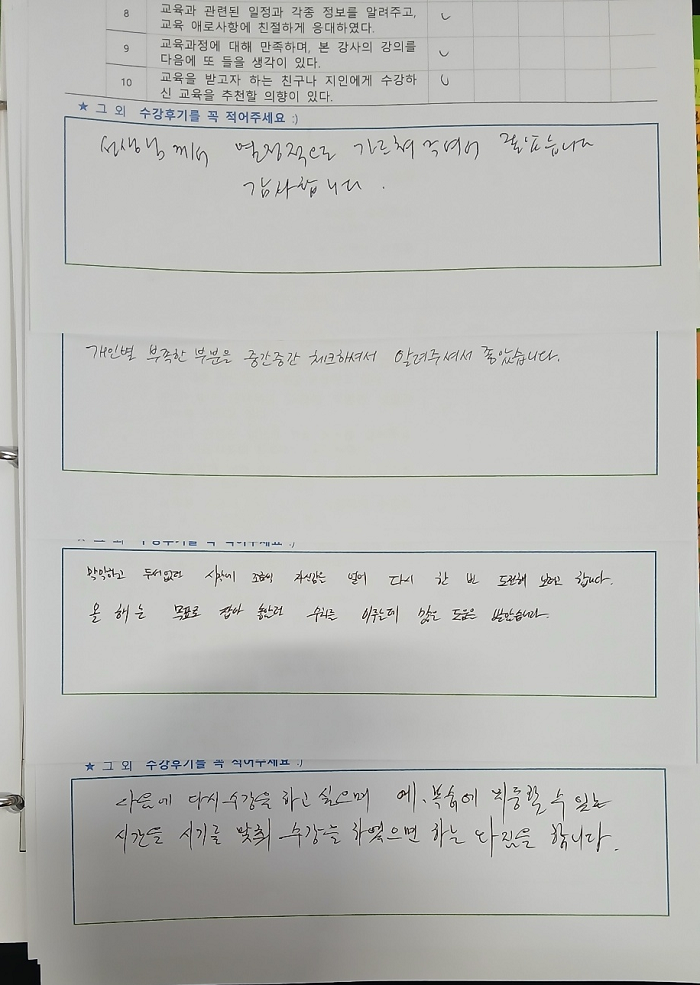 8 교육과 관련된 일정과 각종 정보를 알려주고,
교육 애로사항에 친절하게 응대하였다.
9 교육과정에 대해 만족하며, 본 강사의 강의를
다음에 또 들을 생각이 있다.
10 교육을 받고자 하는 친구나 지인에게 수강하
신 교육을 추천할 의향이 있다.
★ 그 외 수강후기를 꼭 적어주세요 :)
선생님께서 열정적으로 가르쳐 주셔서 좋았습니다
감사합니다.
개인별 부족한 부분을 중간중간 체크하셔서 알려주셔서 좋았습니다.
★ 그 외 수강후기를 꼭 적어주세요 :)
막막하고 두서없던 시작에 조금의 자신감을 얻어 다시 한 번 도전해 보려고 합니다.
올 해는 목표로 잡아 놓았던 수료를 이루는데 많은 도움을 받았습니다.
★ 그 외 수강후기를 꼭 적어주세요 :)
다음에 다시 수강을 하고 싶으며 예.복습에 치중할 수 있는
시간을 시기를 맞춰 수강을 하였으면 하는 다짐을 합니다.